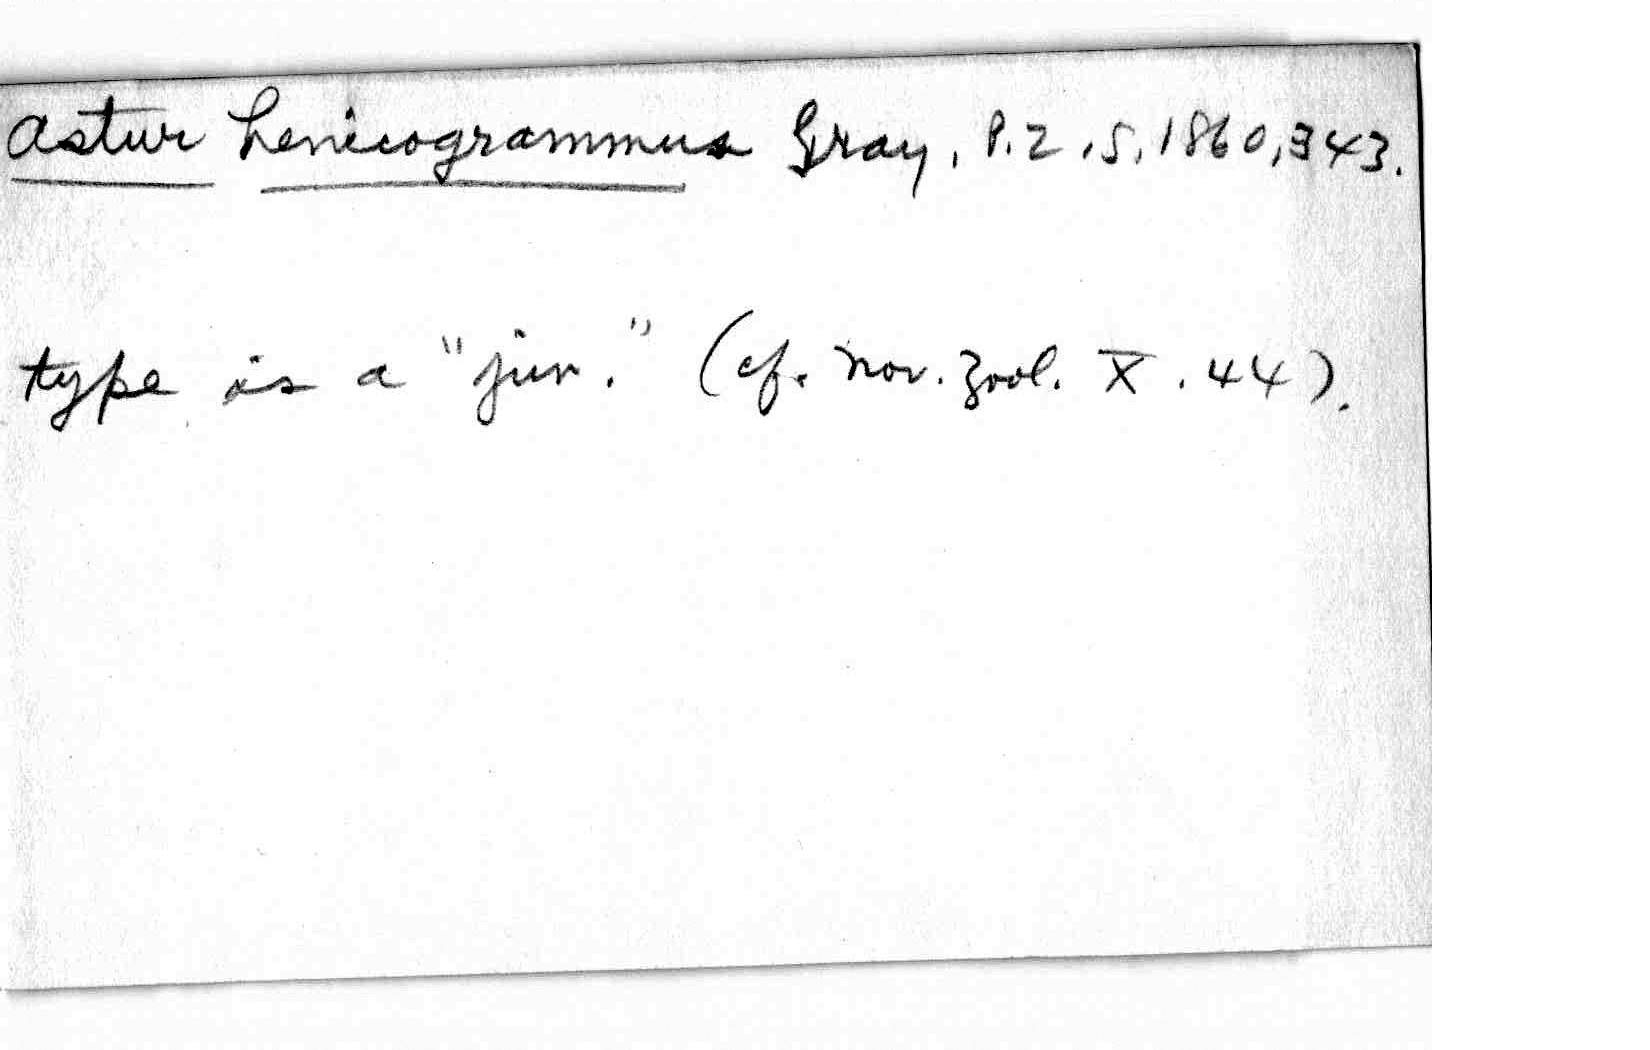 Astur henicogrammus Gray, P.Z.S. 1860, 343.
type is a "juv." (cf. Nov. Zool. X. 44).